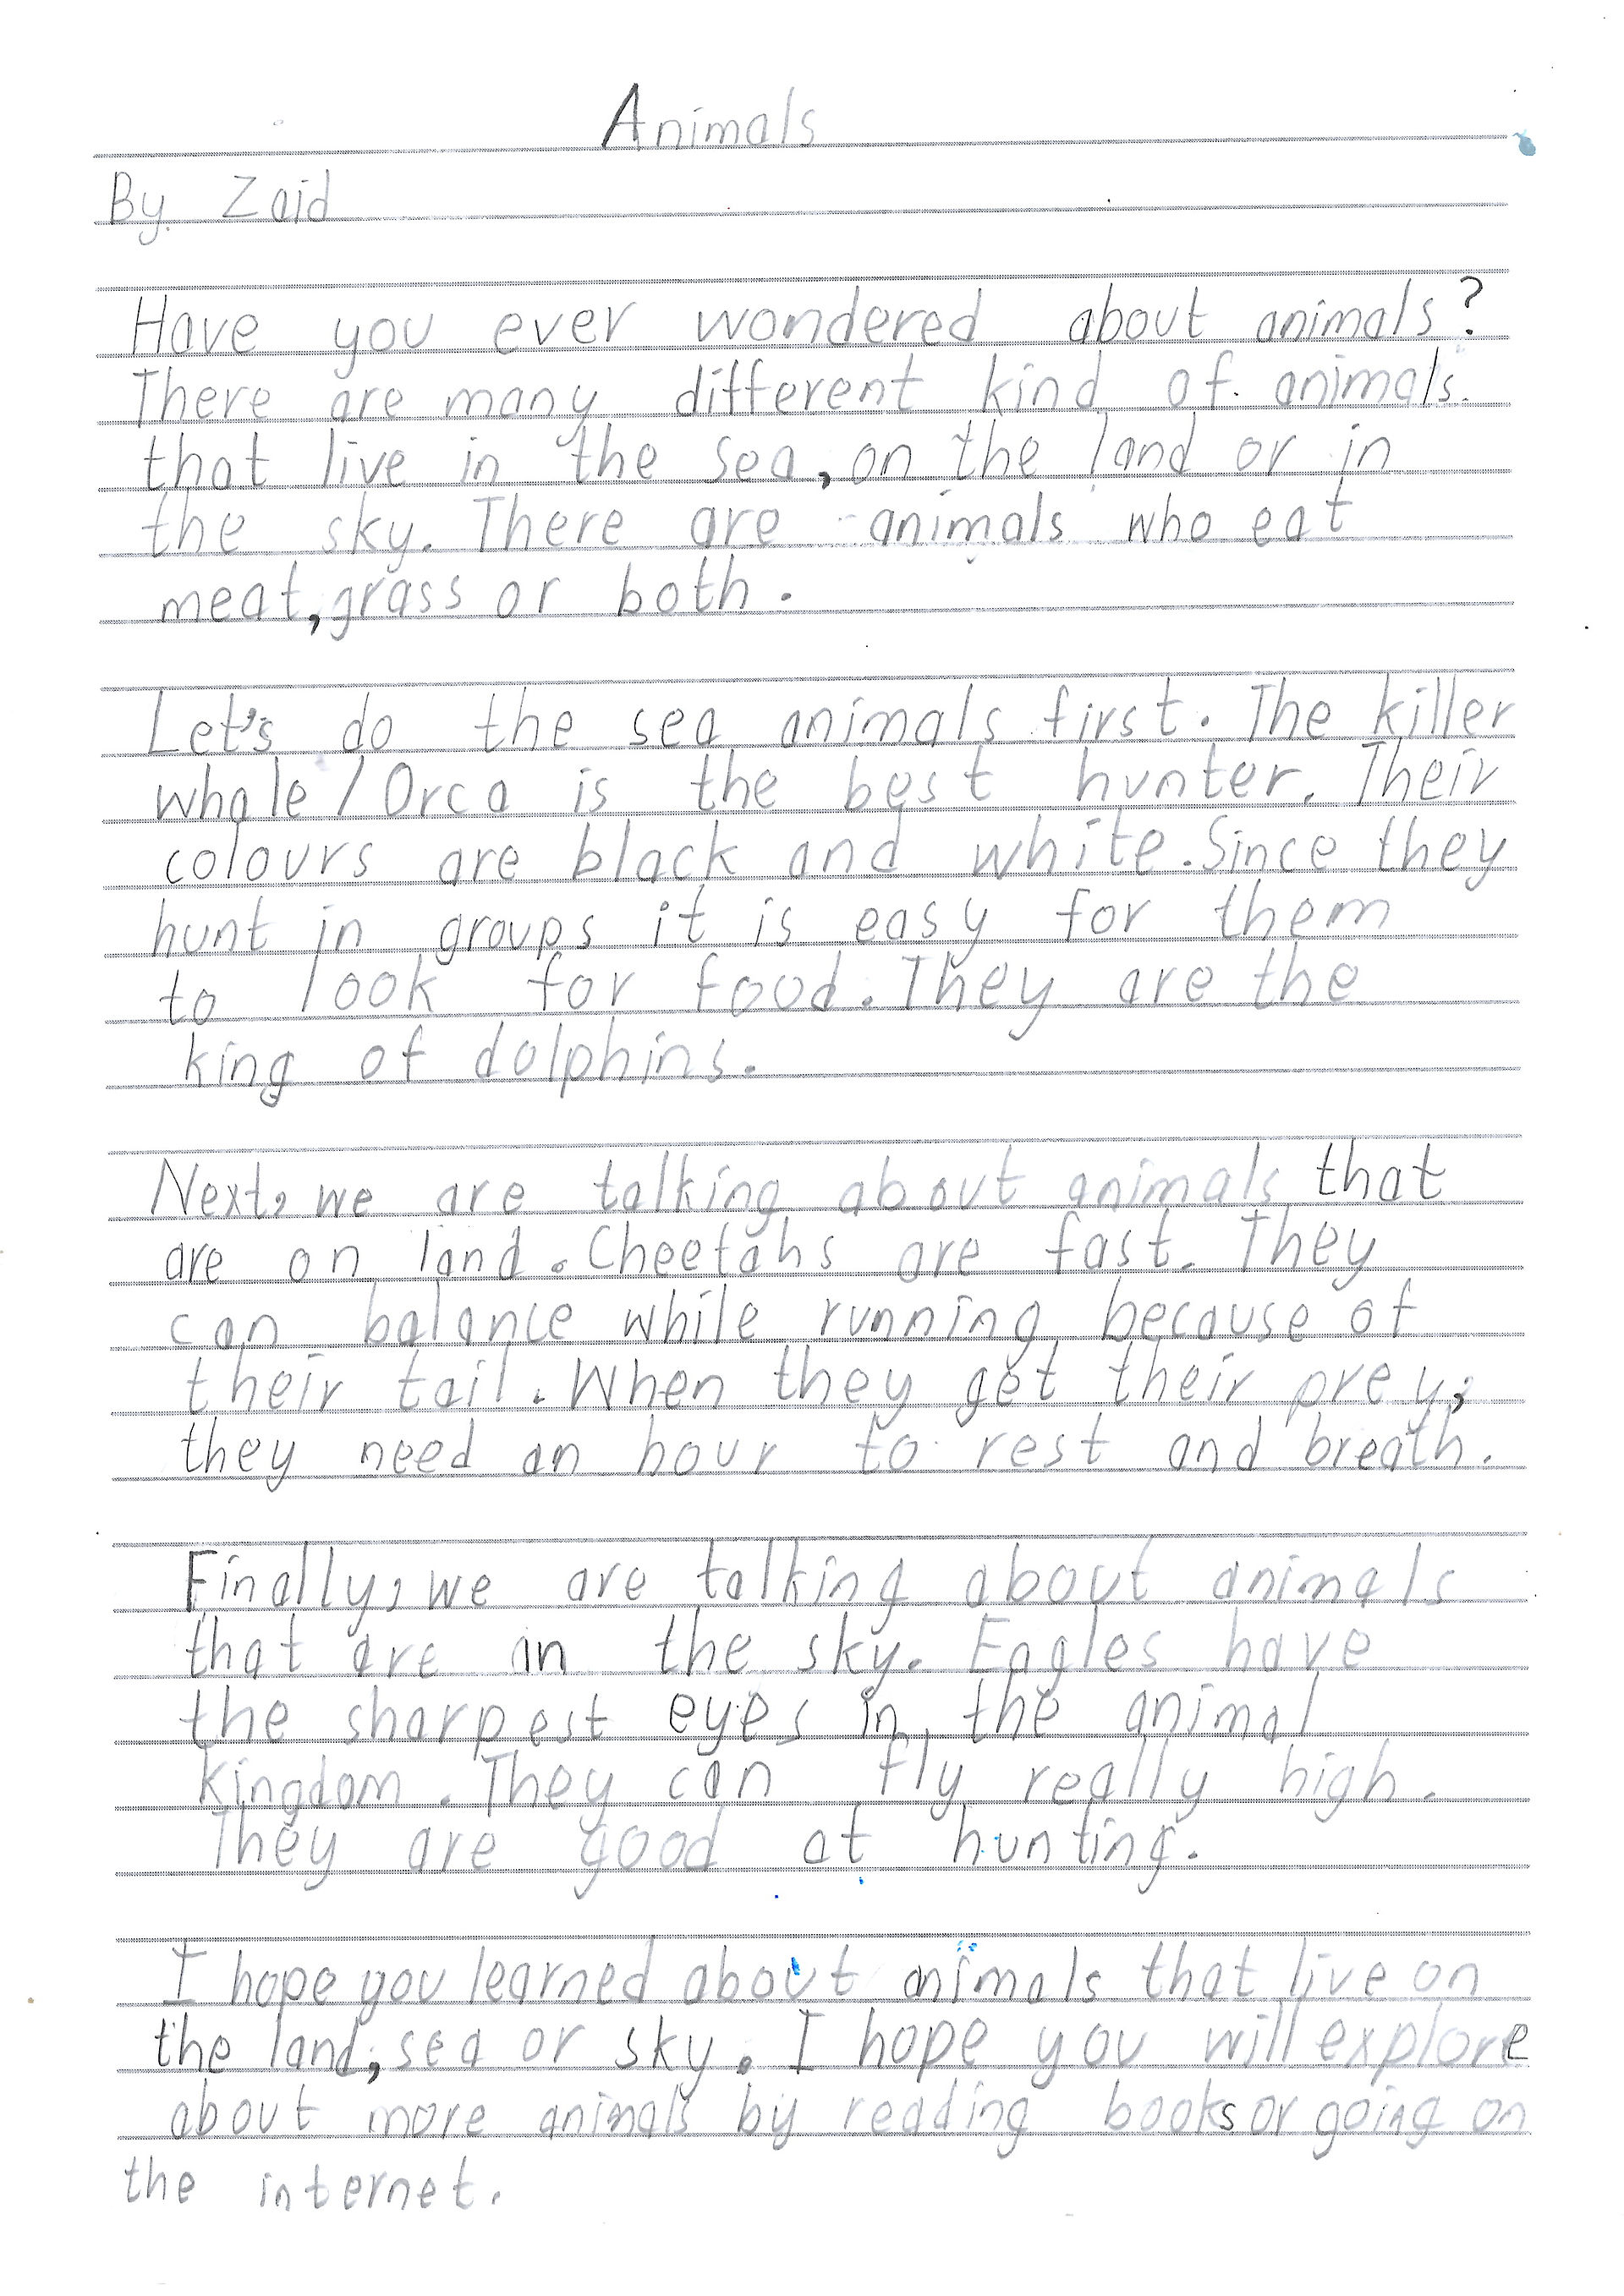 Animals
By. Zaid
Have you ever wondered about animals?
There are many different kind of animals
that live in the sea, on the land or in
the sky. There are animals who eat
meat, grass or both.
Let's do the sea animals first. The killer
whale / Orca is the best hunter. Their
colours are black and white. Since they
hunt in groups it is easy for them
to look for food. They are the
king of dolphins.
Next, we are talking about animals that
are on land. Cheetahs are fast. They
can balance while running because of
their tail. When they get their prey,
they need an hour to rest and breath.
Finally, we are talking about animals
that are in the sky. Eagles have
the sharpest eyes in the animal
kingdom. They can fly really high.
They are good at hunting.
I hope you learned about animals that live on
the land, sea or sky. I hope you will explore
about more animals by reading books or going on
the internet.